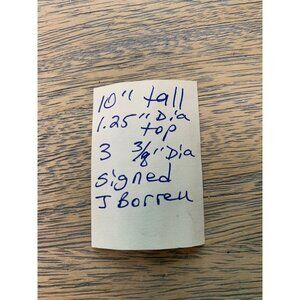 10" tall
1.25" Dia
top
3 3/8" Dia
signed
J Borrell